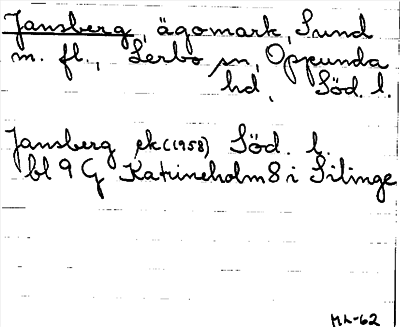 Jansberg, ägomark, Sund
m. fl., Lerbo sn, Oppunda
hd, Söd. l.
Jansberg ek(1958) Söd. l.
bl 9 G Katrineholm 8 i Silinge
ML-62